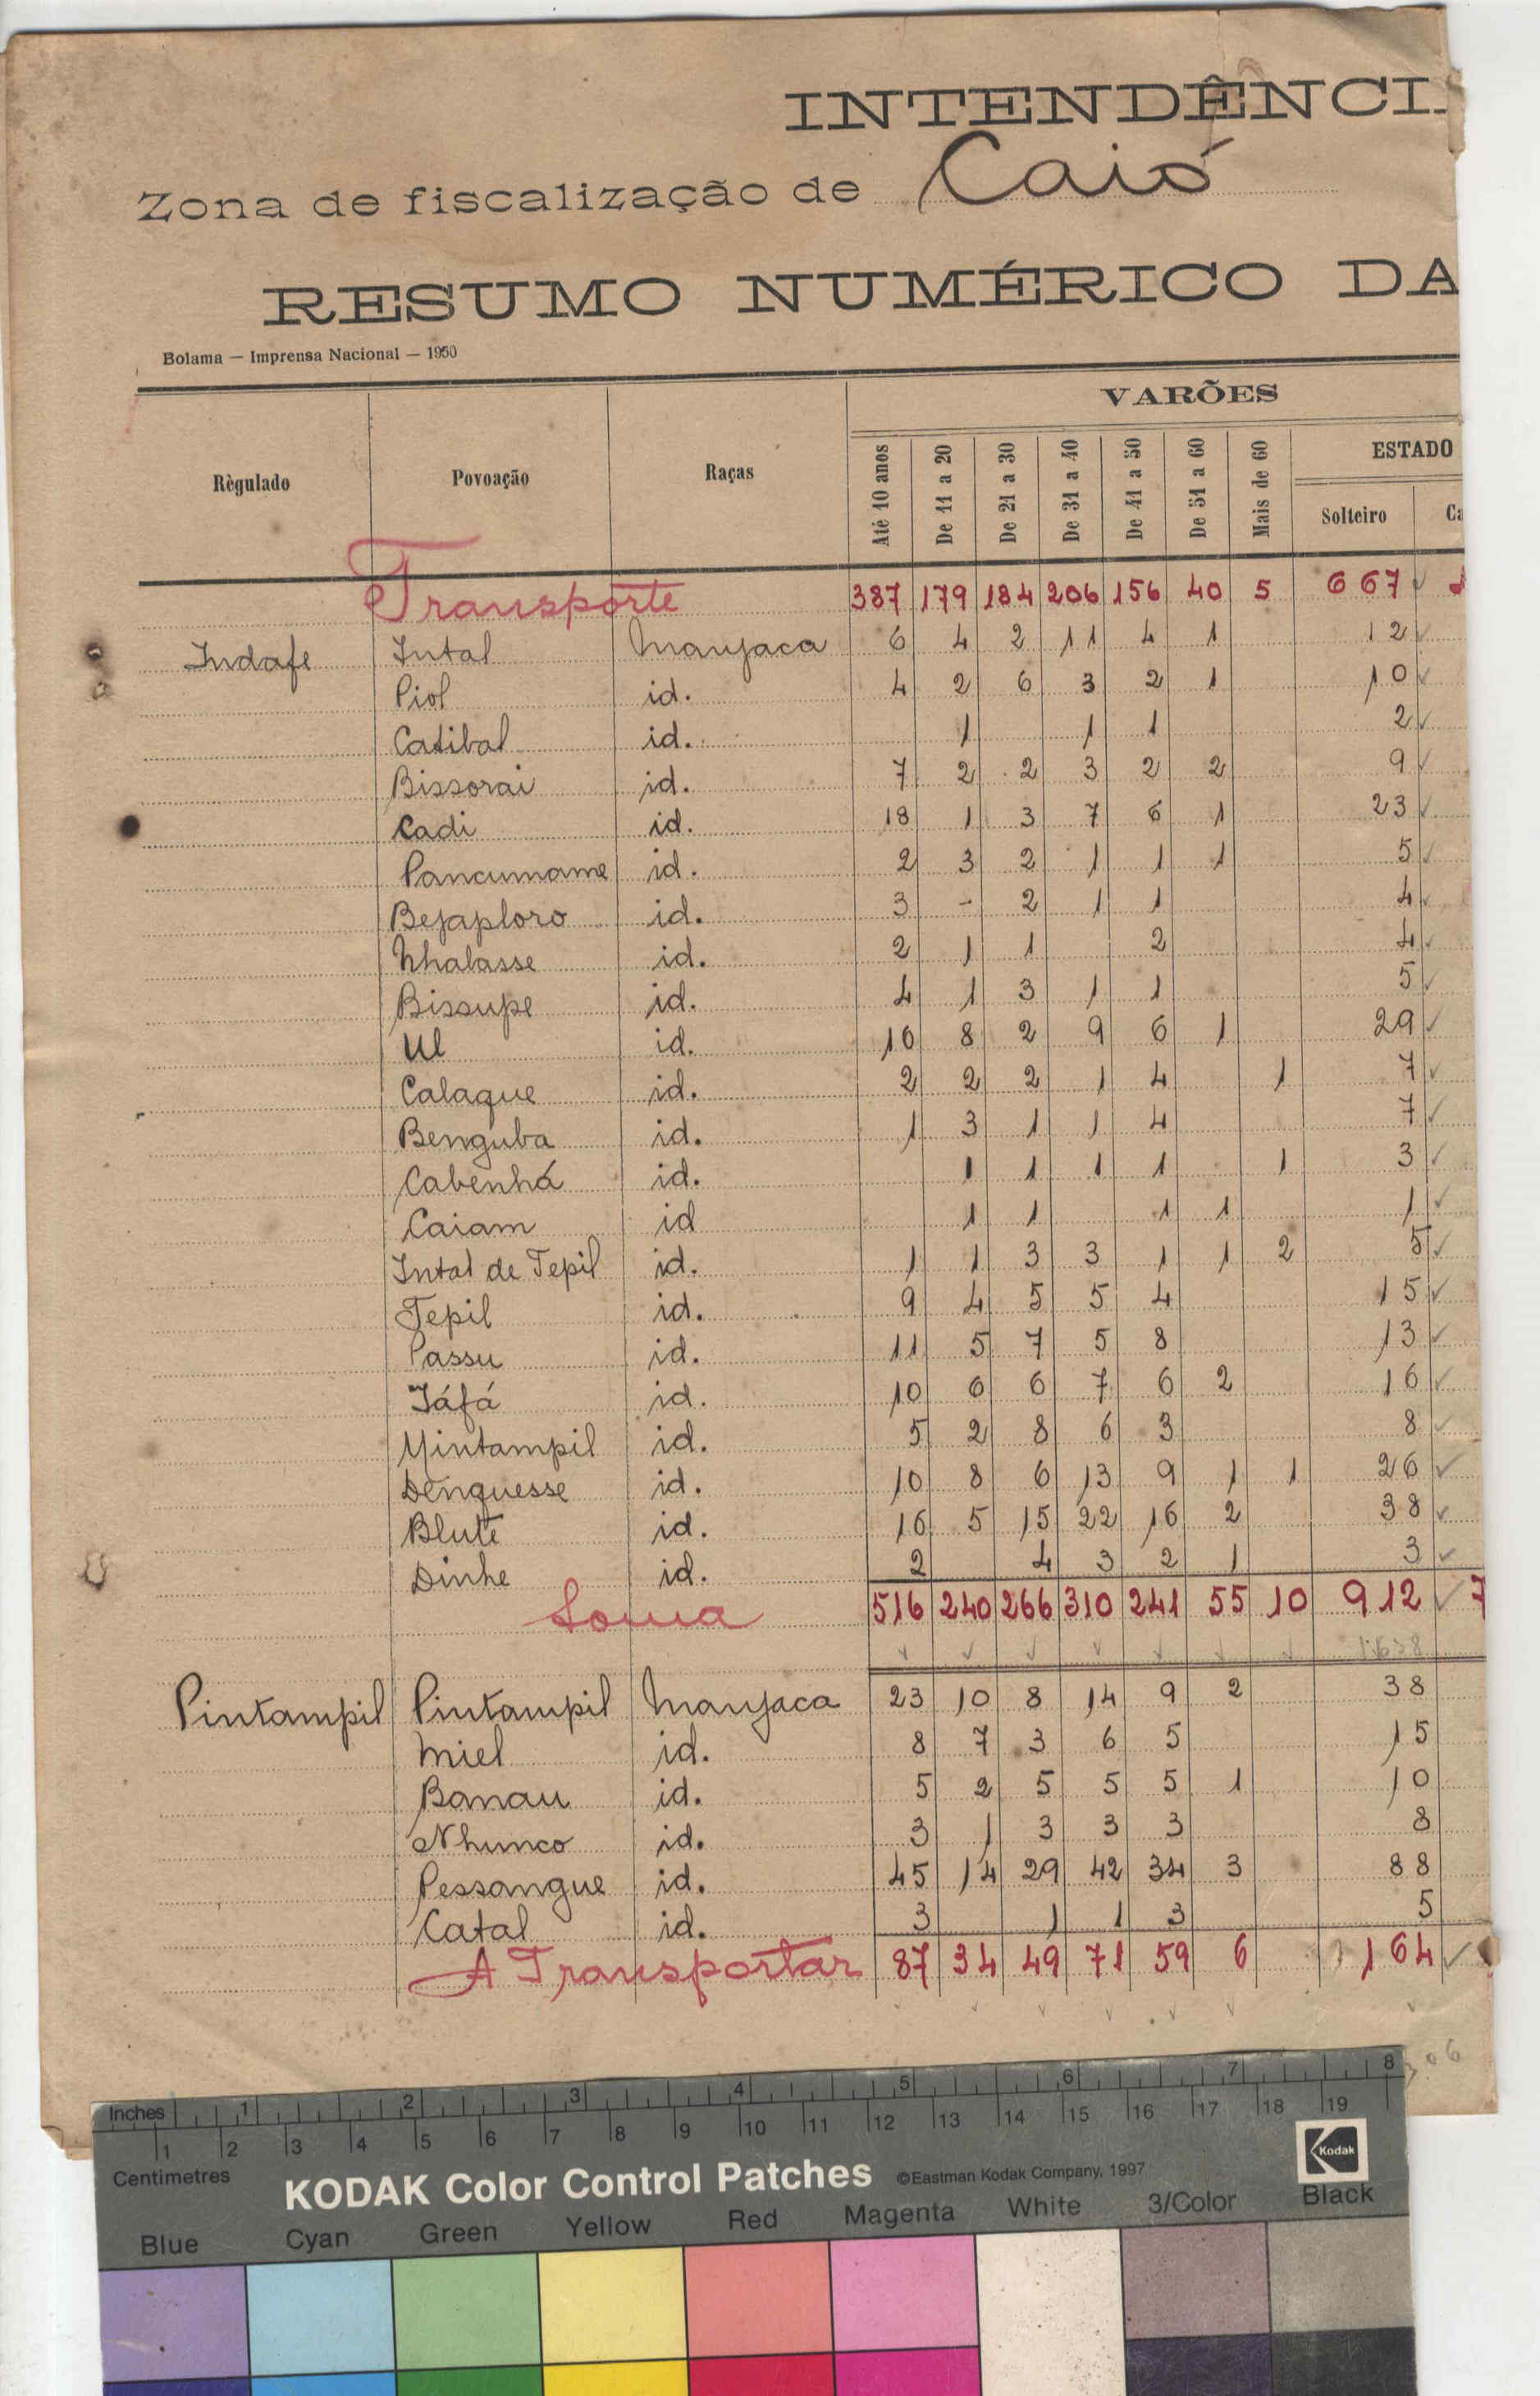 INTENDÊNCI
Zona de fiscalização de Caió
RESUMO NUMÉRICO DA
Bolama — Imprensa Nacional — 1950
VARÕES
Règulado Povoação Raças Até 10 anos De 11 a 20 De 21 a 30 De 31 a 40 De 41 a 50 De 51 a 60 Mais de 60 ESTADO
Solteiro Ca
Transporte 387 179 184 206 156 40 5 667
Indafe Intal Manjaca 6 4 2 11 4 1 12
Piol id. 4 2 6 3 2 1 10
Catibal id. 1 1 1 2
Bissorai id. 7 2 2 3 2 2 9
Cadi id. 18 1 3 7 6 1 23
Pancumame id. 2 3 2 1 1 1 5
Bejaploro id. 3 - 2 1 1 4
Nhalasse id. 2 1 1 2 4
Bissupe id. 4 1 3 1 1 5
Ul id. 16 8 2 9 6 1 29
Calaque id. 2 2 2 1 4 1 7
Benguba id. 1 3 1 1 4 7
Cabenhá id. 1 1 1 1 1 3
Caiam id 1 1 1 1 1
Intal de Tepil id. 1 1 3 3 1 1 2 5
Tepil id. 9 4 5 5 4 15
Passu id. 11 5 7 5 8 13
Táfá id. 10 6 6 7 6 2 16
Mintampil id. 5 2 8 6 3 8
Denguesse id. 10 8 6 13 9 1 1 26
Blute id. 16 5 15 22 16 2 38
Dinhe id. 2 4 3 2 1 3
Soma 516 240 266 310 241 55 10 912 7
1.638
Pintampil Pintampil Manjaca 23 10 8 14 9 2 38
Miel id. 8 7 3 6 5 15
Banau id. 5 2 5 5 5 1 10
Nhunco id. 3 1 3 3 3 8
Pessangue id. 45 14 29 42 34 3 88
Catal id. 3 1 1 3 5
A Transportar 87 34 49 71 59 6 164
306
Inches 1 2 3 4 5 6 7 8
Centimetres 1 2 3 4 5 6 7 8 9 10 11 12 13 14 15 16 17 18 19
KODAK Color Control Patches ©Eastman Kodak Company, 1997 Kodak
Blue Cyan Green Yellow Red Magenta White 3/Color Black